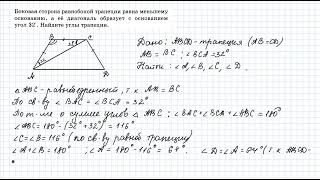 Боковая сторона равнобокой трапеции равна меньшему
основанию, а её диагональ образует с основанием
угол 32°. Найдите углы трапеции.
B C
32°
A D
Дано: ABCD - трапеция (AB=CD)
AB = BC ; ∠BCA = 32°
Найти: ∠A, ∠B, ∠C, ∠D.
△ ABC - равнобедренный, т.к AB = BC.
По св-ву ∠BAC = ∠BCA = 32°
По т-ме о сумме углов △ABC ; ∠BAC+∠BCA+∠ABC = 180°
∠ABC = 180° - (32°+32°) = 116°
∠C = ∠B = 116° (по св-ву равноб трапеции)
∠A+∠B = 180° ; ∠A = 180° - 116° = 64°. ∠D = ∠A = 64° (т.к ABCD-